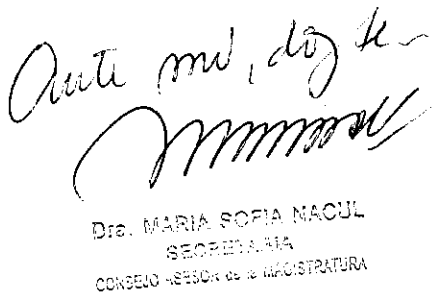 Ante mi, doy fe-
Dra. MARIA SOFIA NACUL
SECRETARIA
CONSEJO ASESOR de la MAGISTRATURA